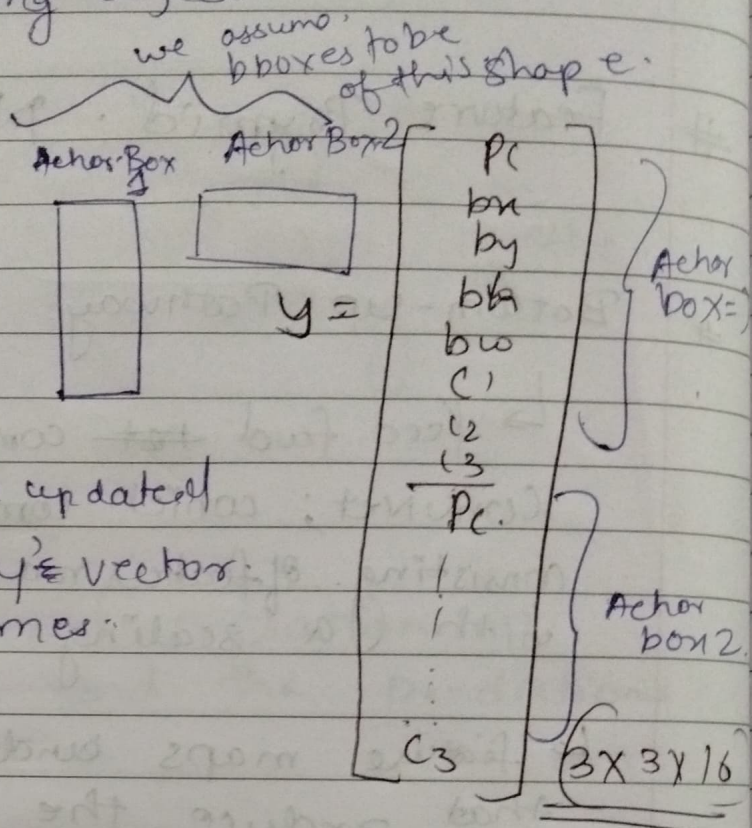 we assume,
bboxes to be
of this shape.
Achor Box 1
Achor Box 2
y =
Pc
bx
by
bh
bw
C1
C2
C3
Pc.
C3
Achor
box =
Achor
box 2.
updated
y's vector
mes:
3 x 3 x 16